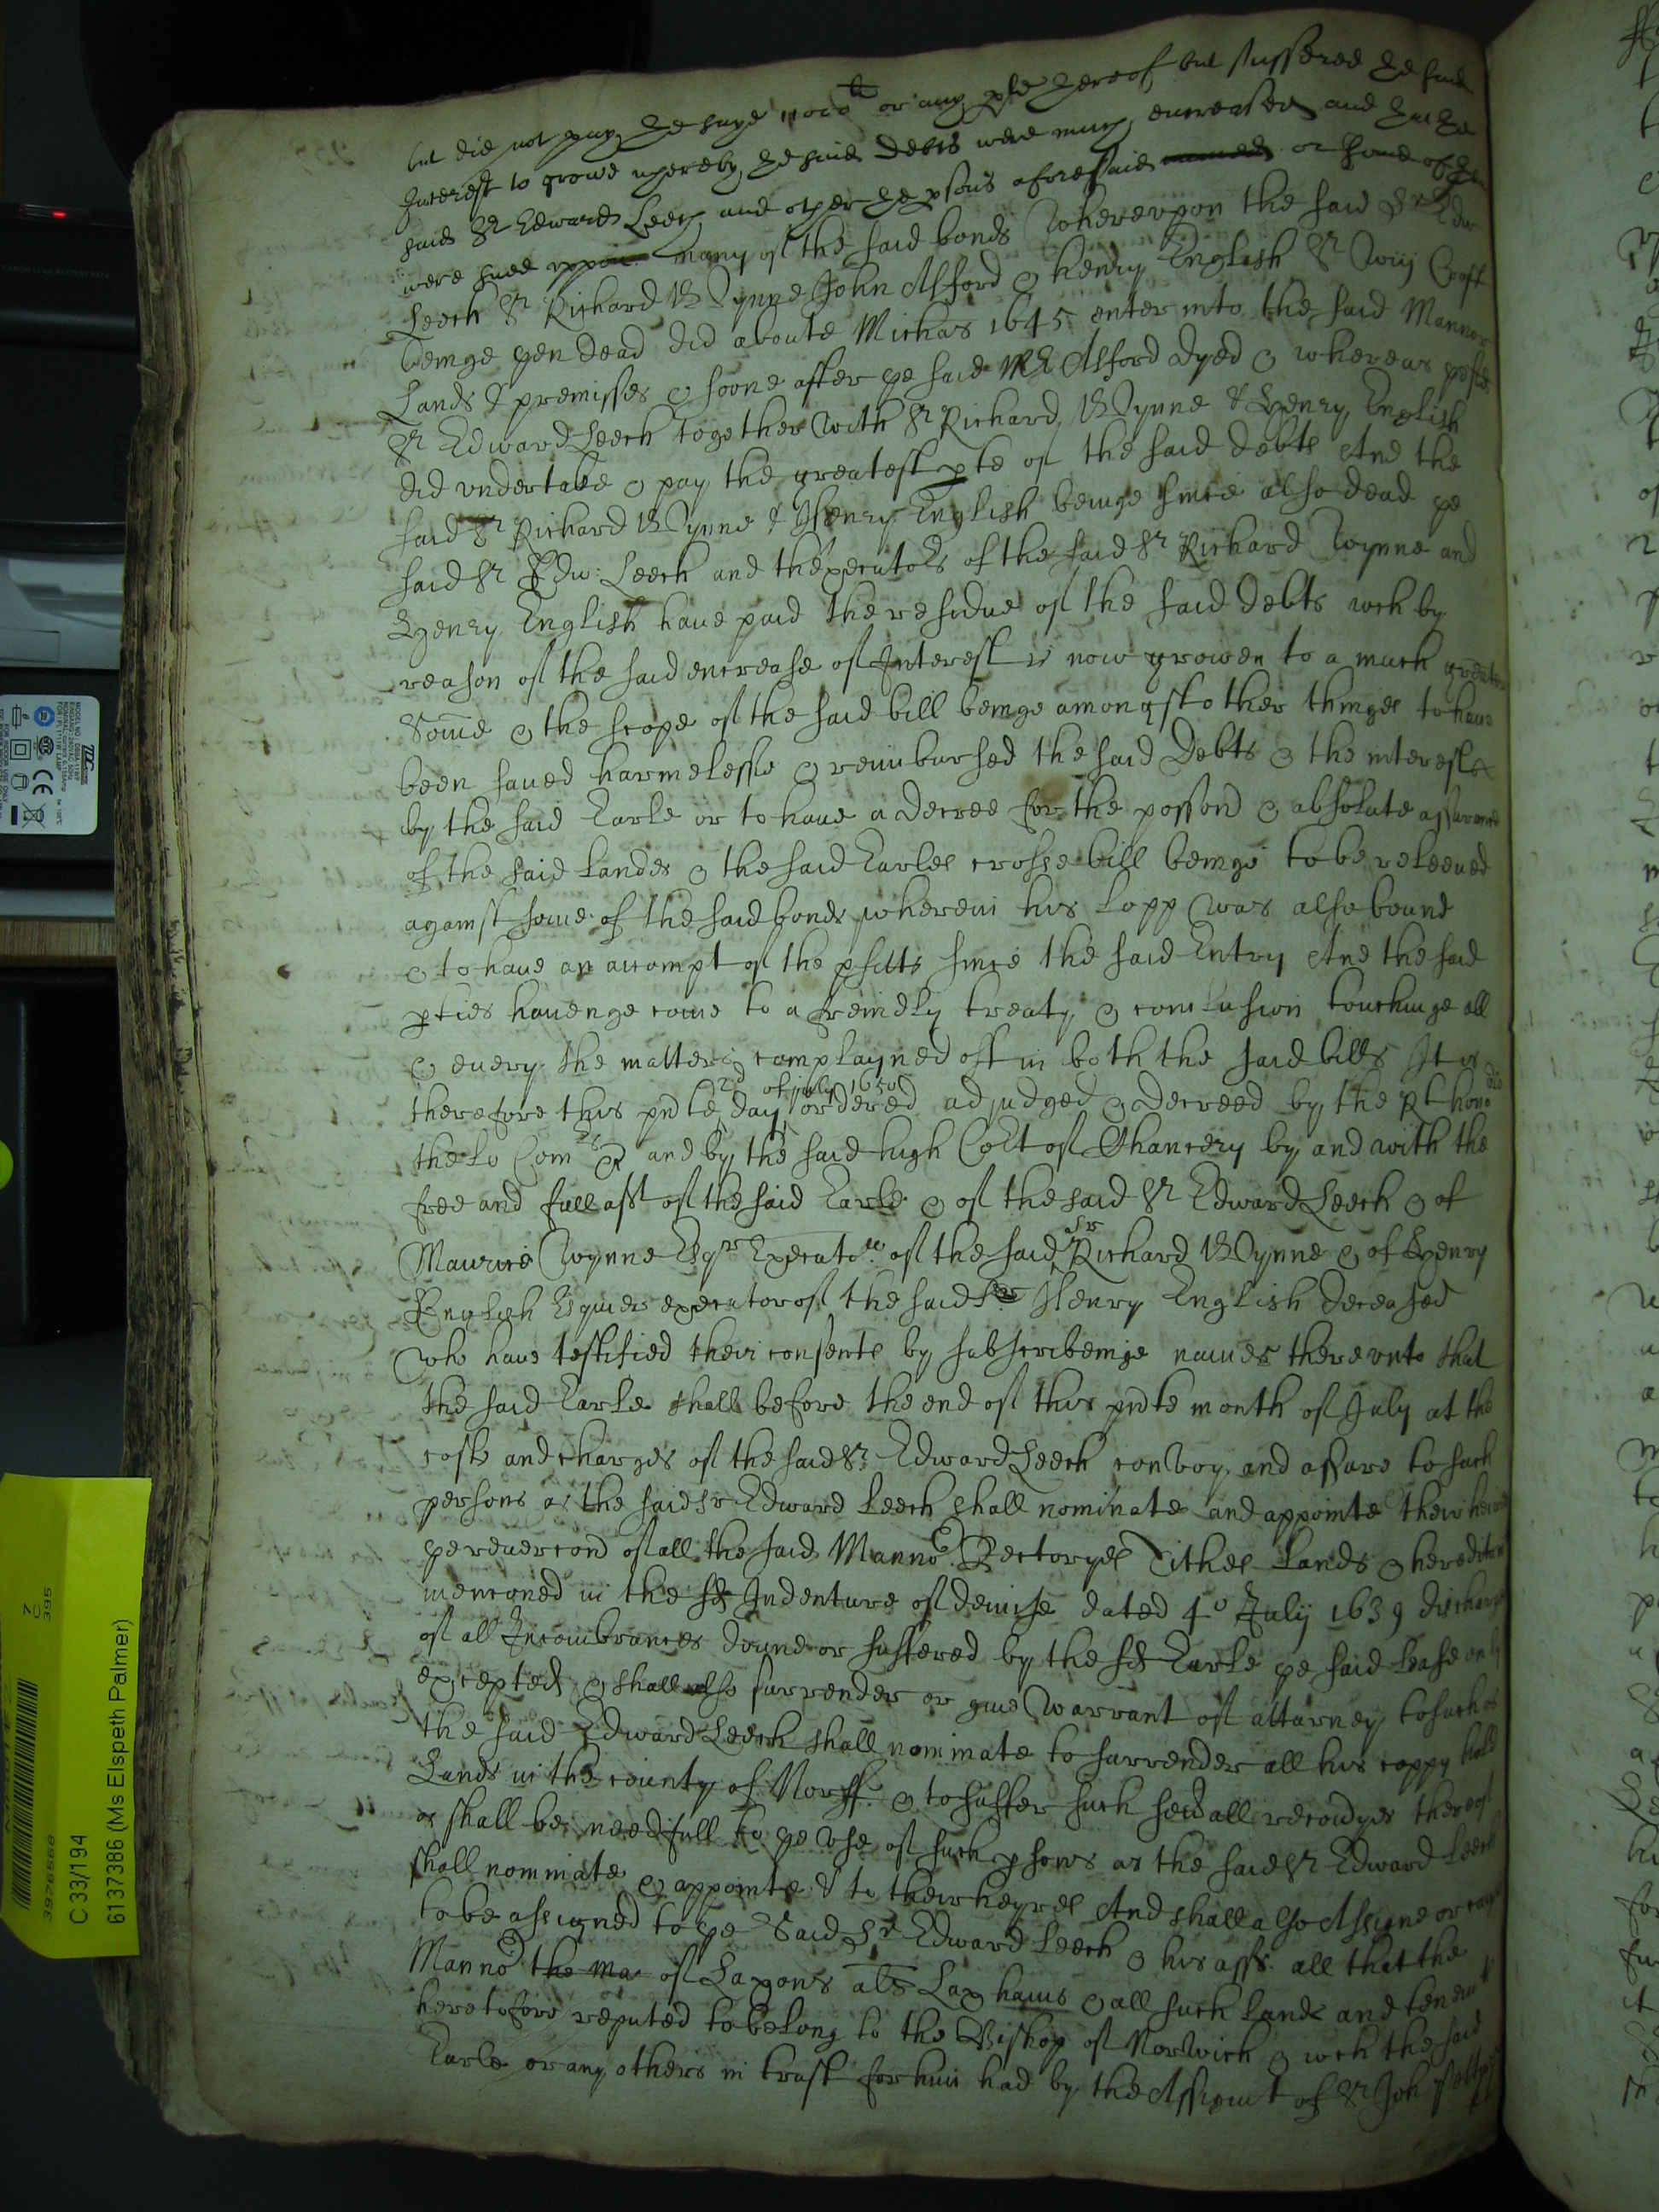 but did not pay the saye 11000li or any pte thereof but suffered the said
Interest to growe whereby the said debts were much encreased and that the
said Sr Edward Leech and other the psons aforesaid or some of them
were sued many of the said bonds Wherevpon the said Sr Edw
Leech Sr Richard Wynne John Alford & henry English Sr Wm
beinge then dead did aboute Michas 1645 enter into the said Mannor
Lands & premisses & soone after ye said Mr Alford dyed & whereas
Sr Edward Leech together with Sr Richard Wynne & Henry English
did vndertake & pay the greatest pte of the said debts And the
said Sr Richard Wynne & Henry English beinge since also dead ye
said Sr Edw: Leech and thexecutors of the said Sr Richard Wynne and
Henry English haue paid the residue of the said debts wch by
reason of the said encrease of Interest is now growen to a much greater
Some & the scope of the said bill beinge amongst other thinges to haue
been saued harmelesse & reimbursed the said Debts & the interest
by the said Earle or to haue a decree for the possion & absolute assurance
of the said landes & the said Earles crosse bill beinge to be releeued
against some of the said bonds wherein his Lopp was also bound
& to haue an accompt of the pfitts since the said Entry And the said
pties hauenge come to a freindly treaty & conclusion touchinge all
& euery the matters complayned off in both the said bills It is
2d of july 1650
therefore this pnte day ordered adjudged & decreed by the Rt hono
the Lo Comrs & and by the said high Cort of Chancery by and with the
free and full asst of the said Earle & of the said Sr Edward Leech & of
Maurice Wynne Esqr Executor of the said Sr Richard Wynne & of Henry
English Esquier executor of the said Henry English deceased
who haue testified their consente by subscribeinge names therevnto that
the said Earle shall before the end of this pnte month of July at the
costs and charges of the said Sr Edward Leech convey and assure to such
persons as the said Sr Edward Leech shall nominate and appointe their heires
ye reuercon of all the said Mannor Rectoryes Tithes Lands & hereditamts
mencioned in the sd Indenture of demise dated 4o July 1639 discharged
of all Incombrances donne or suffered by the sd Earle ye said lease only
excepted & shall also surrender or giue Warrant of attarney to such as
the said Edward Leech shall nominate to surrender all his coppy hold
Lands in the county of Norff & to suffer such seuall recoueryes thereof
as shall be needfull to ye vse of such psons as the said Sr Edward Leech
shall nominate & appointe & to their heyres And shall also Assigne or cause
to be assigned to ye Said Sr Edward Leech & his asss all that the
Mannor the ma of Laxons als Laxhams & all such lands and tenemts
heretofore reputed to belong to the Bishop of Norwich & wch the said
Earle or any others in trust for him had by the Assignmt of Sr John
C 33/194
6137386 (Ms Elspeth Palmer)